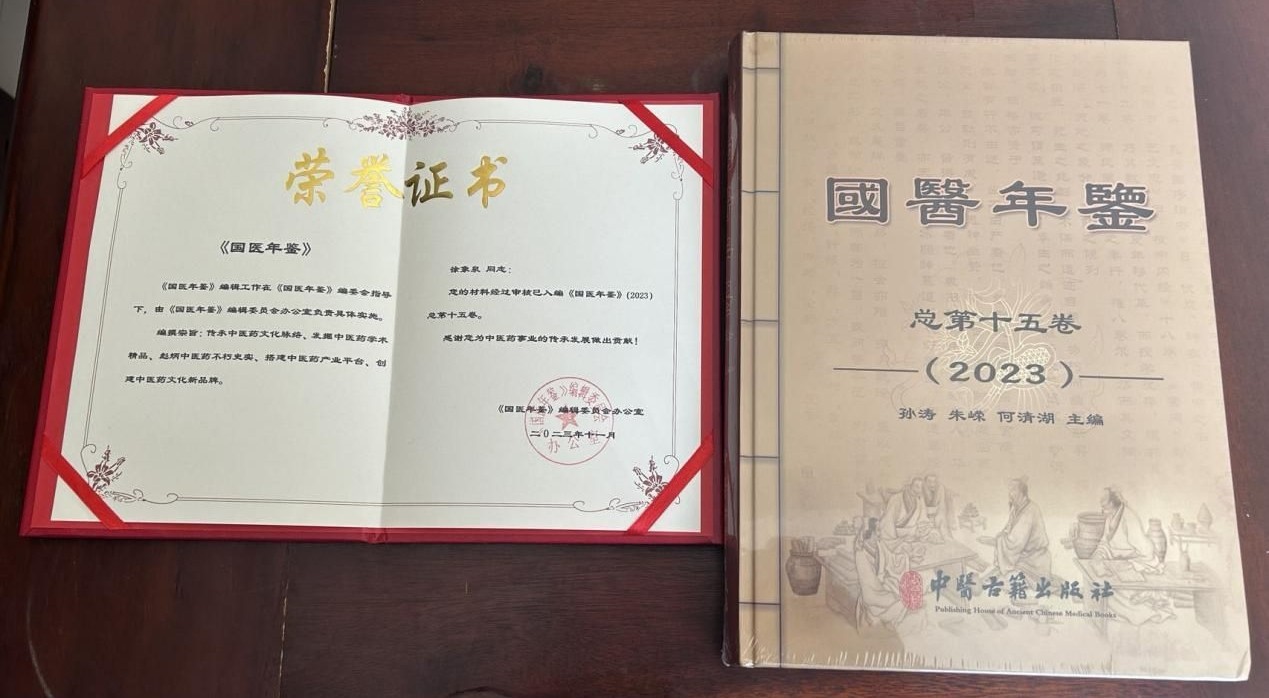 荣誉证书
《国医年鉴》
《国医年鉴》编辑工作在《国医年鉴》编委会指导
下，由《国医年鉴》编辑委员会办公室负责具体实施。
编撰宗旨：传承中医药文化脉络、发掘中医药学术
精品、彪炳中医药不朽史实、搭建中医药产业平台、创
建中医药文化新品牌。
徐象泉 同志：
您的材料经过审核已入编《国医年鉴》(2023)
总第十五卷。
感谢您为中医药事业的传承发展做出贡献！
《国医年鉴》编辑委员会办公室
二0二三年十一月
國醫年鑒
总第十五卷
（2023）
孙涛 朱嵘 何清湖 主编
中醫古籍出版社
Publishing House of Ancient Chinese Medical Books